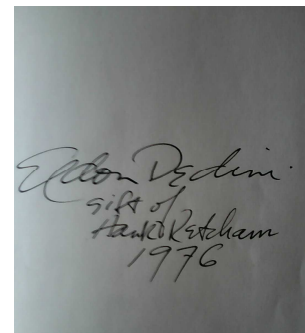 Eldon Dedini
gift of
Hank Ketcham
1976